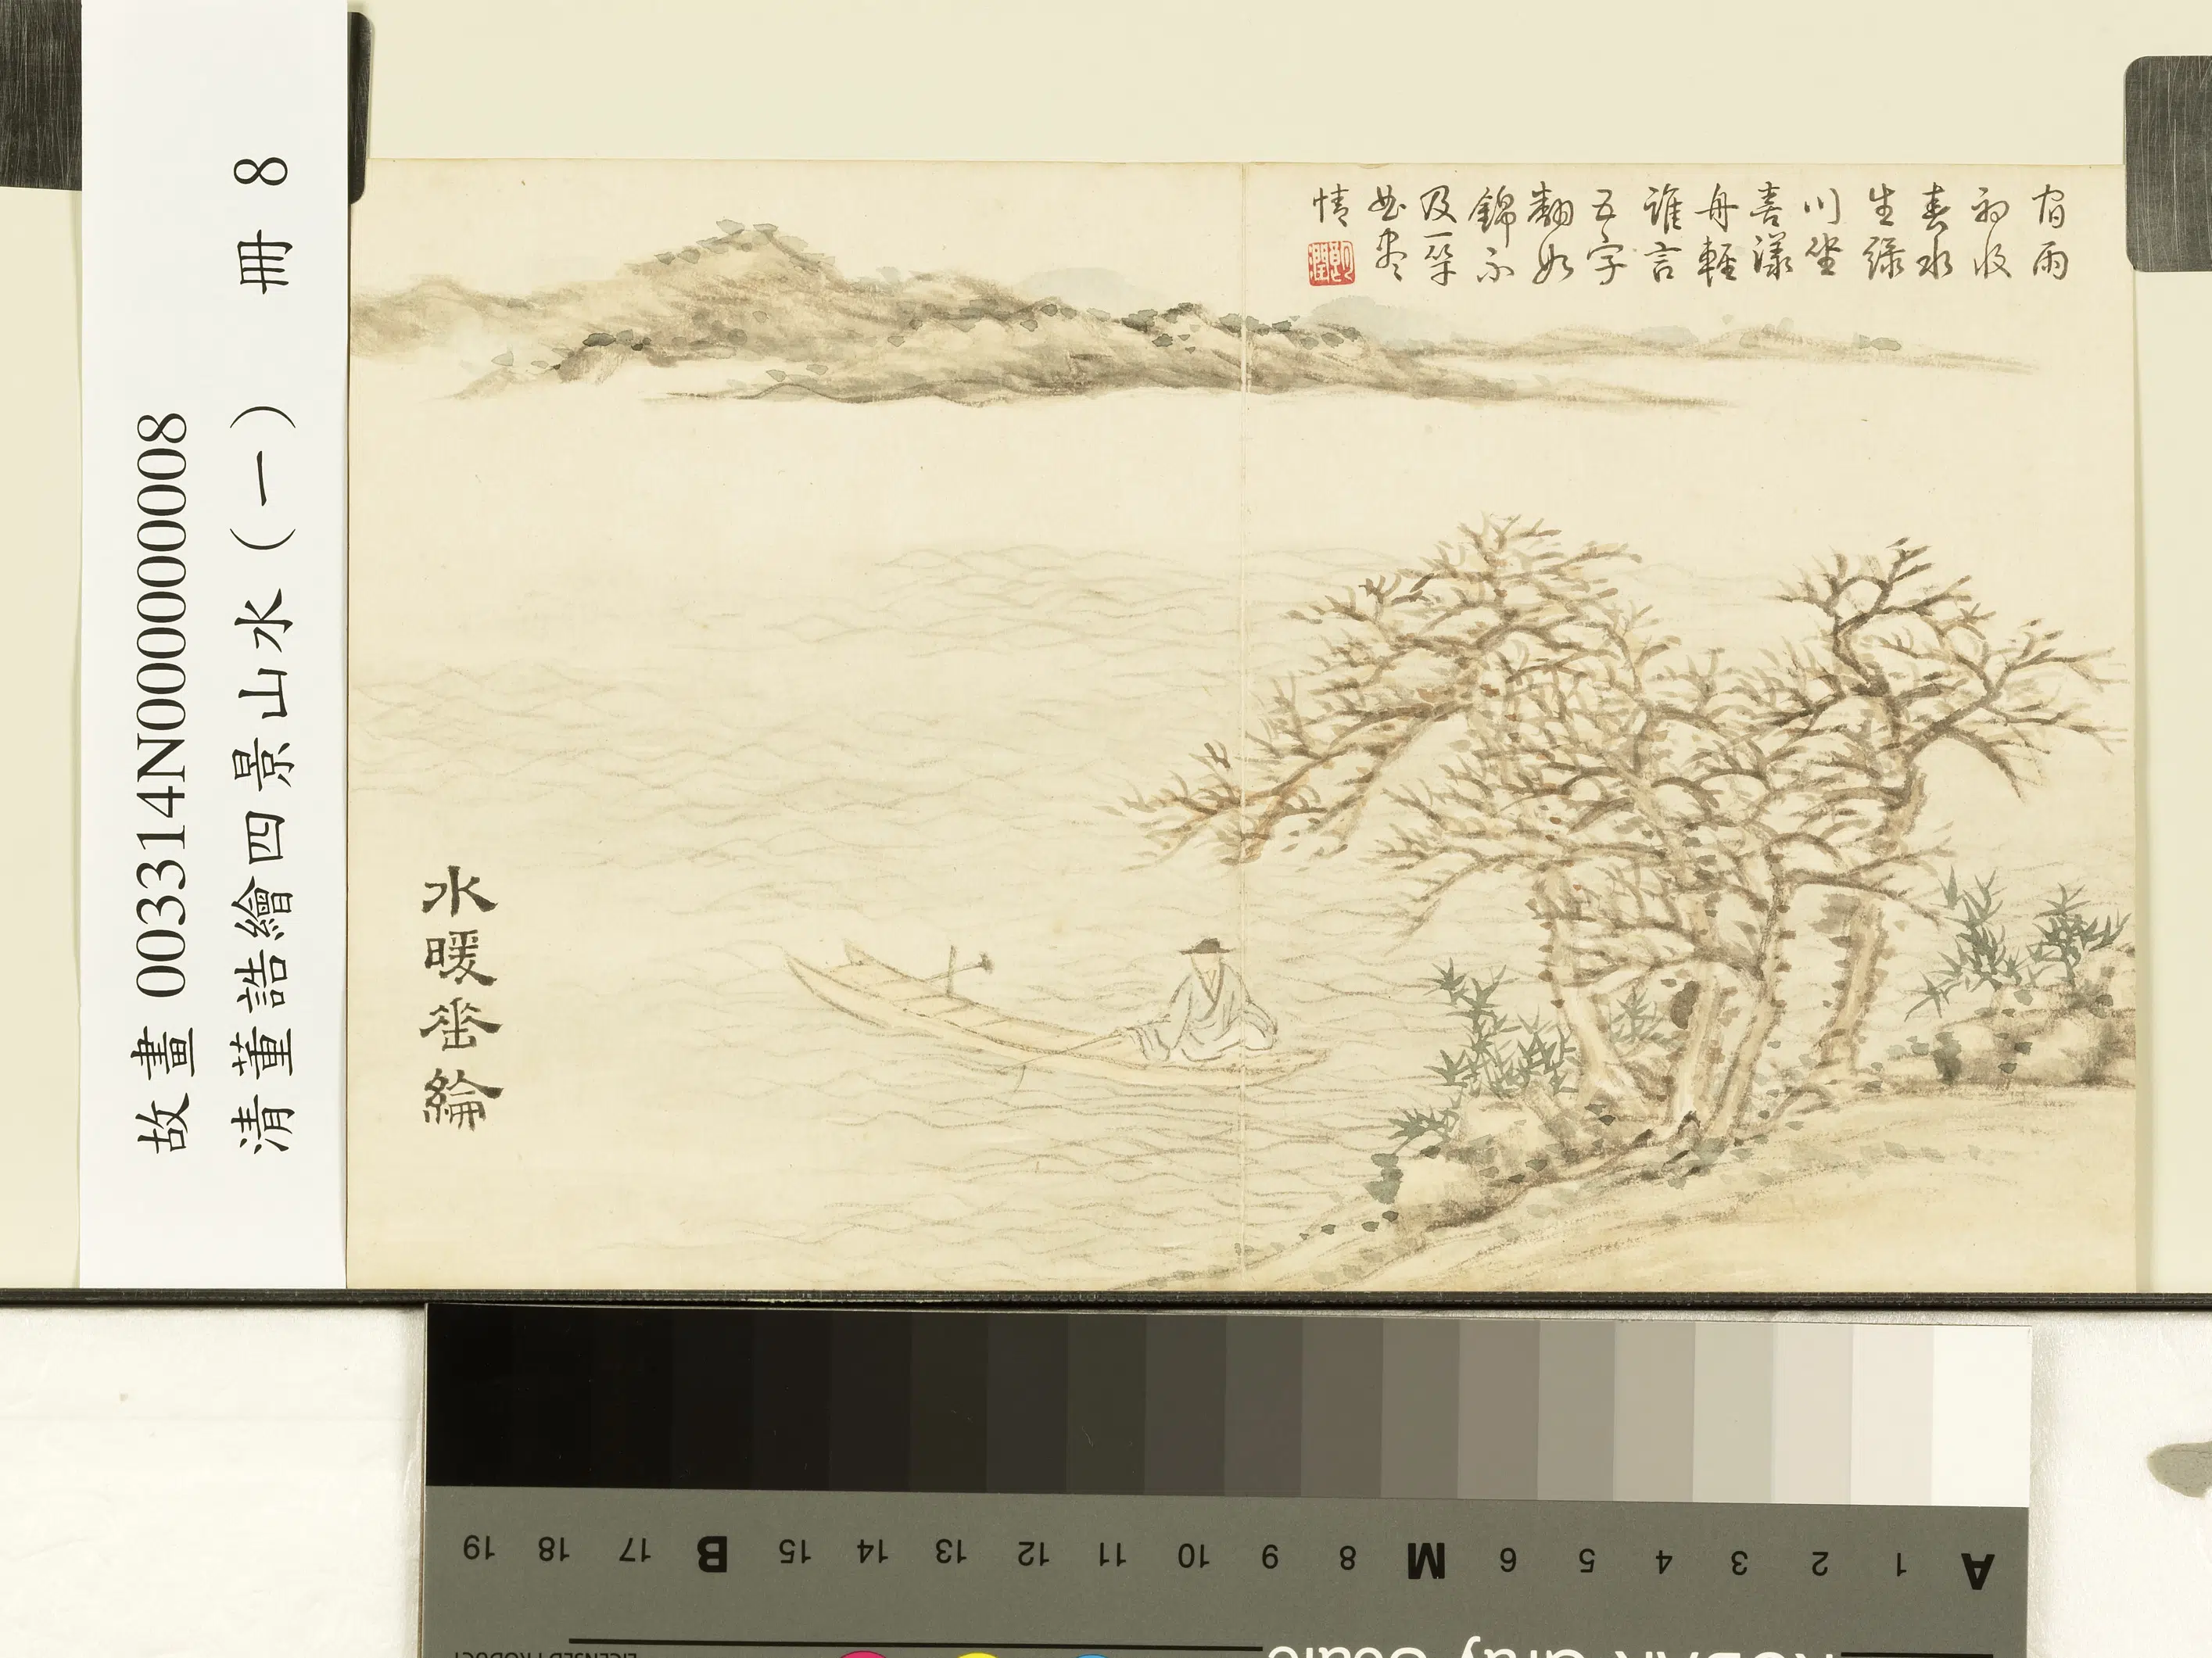 宿雨
初收
春水
生綠
川坐
喜漾
舟輕
誰言
五字
翻如
錦不
及一竿
盡
情
朗潤
水暖垂綸
故畫 003314N000000008
清董誥繪四景山水(一) 冊 8
A 1 2 3 4 5 6 M 8 9 10 11 12 13 14 15 B 17 18 19
LICENSED PRODUCT